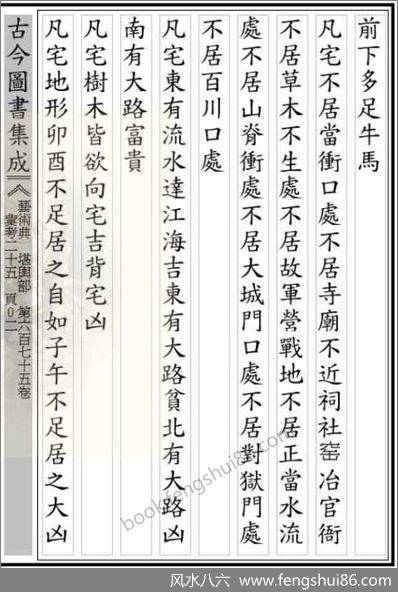 前下多足牛馬
凡宅不居當衝口處不居寺廟不近祠社窑冶官衙
不居草木不生處不居故軍營戰地不居正當水流
處不居山脊衝處不居大城門口處不居對獄門處
不居百川口處
凡宅東有流水達江海吉東有大路貧北有大路凶
南有大路富貴
凡宅樹木皆欲向宅吉背宅凶
凡宅地形卯酉不足居之自如子午不足居之大凶
古今圖書集成
藝術典 堪輿部 第六百七十五卷
彙考二十五 頁0二
bookfengshui86.com
风水八六 www.fengshui86.com